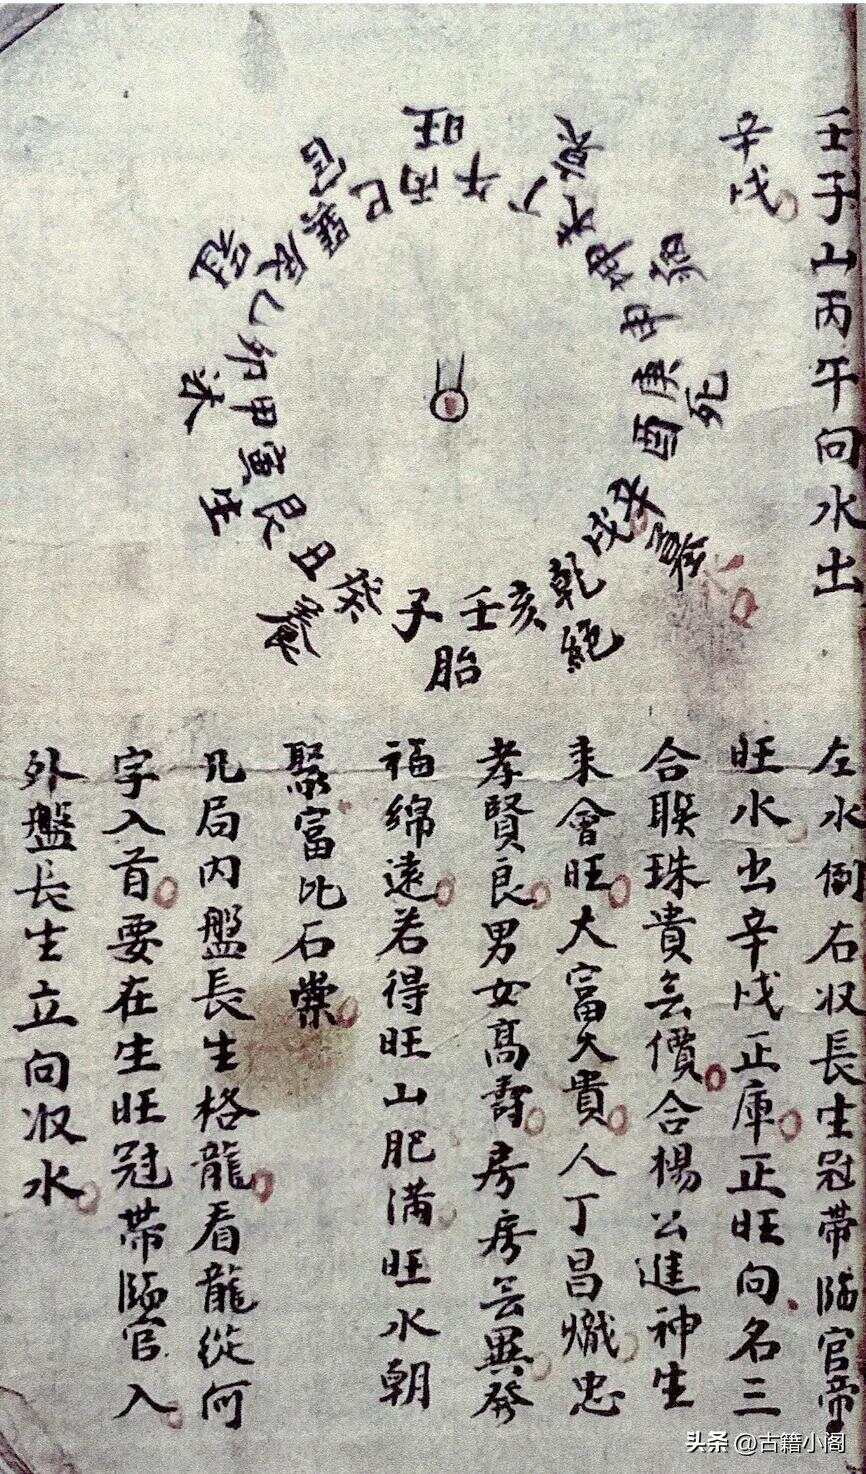 壬子山丙午向水出
辛戌
旺
午
丙
巳
官
巽
辰
冠
乙
卯
沐
甲
寅
生
艮
丑
癸
養
子
壬
胎
亥
乾
絕
戌
辛
墓
酉
庚
死
申
坤
病
未
丁
衰
左水倒右收長生冠帶臨官帝
旺水出辛戌正庫正旺向名三
合联珠貴無價合楊公進神生
来會旺大富大貴人丁昌熾忠
孝賢良男女高壽房房無異發
福綿遠若得旺山肥满旺水朝
聚富比石崇
凡局内盤長生格龍看龍從何
字入首要在生旺冠帶臨官入
外盤長生立向收水
头条 @古籍小阁